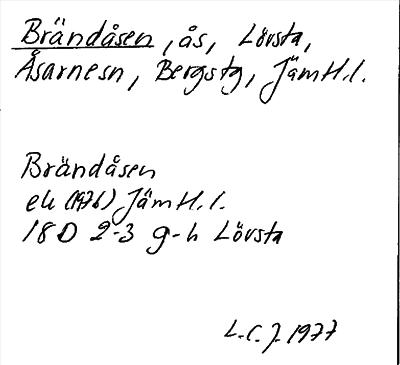 Brändåsen, ås, Lövsta,
Åsarnesn, Bergstg, Jämtl.l.
Brändåsen
ek (1976) Jämtl.l.
18 D 2-3 g-h Lövsta
L.C.J. 1977